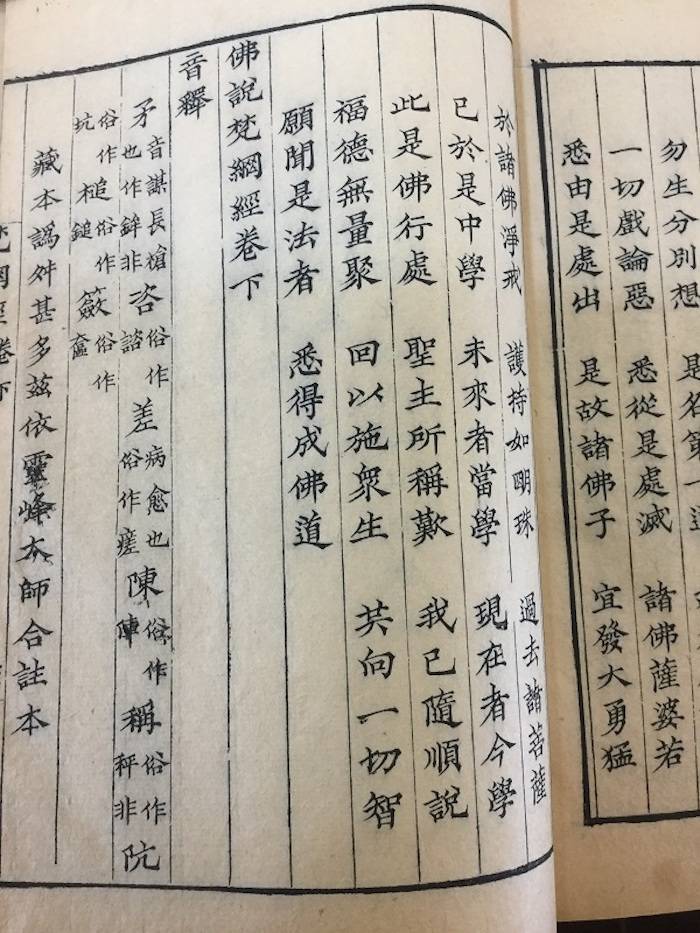 勿生分別想　是名第一道
一切戲論惡　悉從是處滅　諸佛薩婆若
悉由是處出　是故諸佛子　宜發大勇猛
於諸佛淨戒　護持如明珠　過去諸菩薩
已於是中學　未來者當學　現在者今學
此是佛行處　聖主所稱歎　我已隨順說
福德無量聚　回以施眾生　共向一切智
願聞是法者　悉得成佛道
佛說梵網經卷下
音釋
矛音謀長槍也作鉾非　咨俗作諮　差病愈也俗作瘥　陳俗作陣　稱俗作秤非　阬
俗作坑　槌俗作鎚　籢俗作奩
藏本譌舛甚多茲依靈峰大師合註本
網經卷下